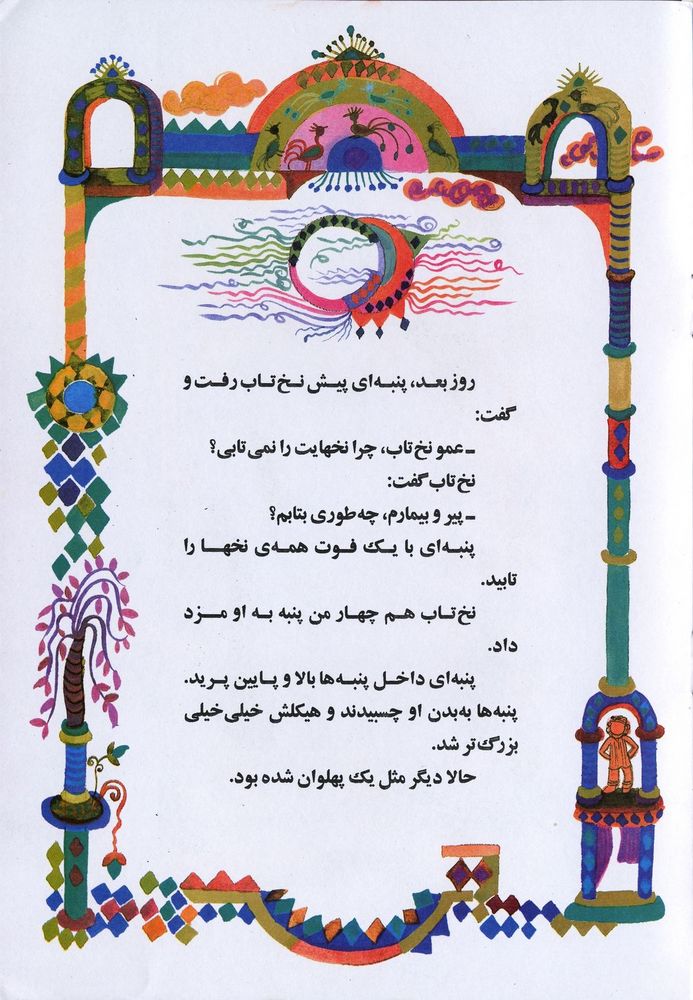 روز بعد، پنبه‌ای پیش نخ‌تاب رفت و
گفت:
ـ عمو نخ‌تاب، چرا نخهایت را نمی‌تابی؟
نخ‌تاب گفت:
ـ پیر و بیمارم، چه‌طوری بتابم؟
پنبه‌ای با یک فوت همه‌ی نخها را
تابید.
نخ‌تاب هم چهار من پنبه به او مزد
داد.
پنبه‌ای داخل پنبه‌ها بالا و پایین پرید.
پنبه‌ها به‌بدن او چسبیدند و هیکلش خیلی‌خیلی
بزرگ‌تر شد.
حالا دیگر مثل یک پهلوان شده بود.